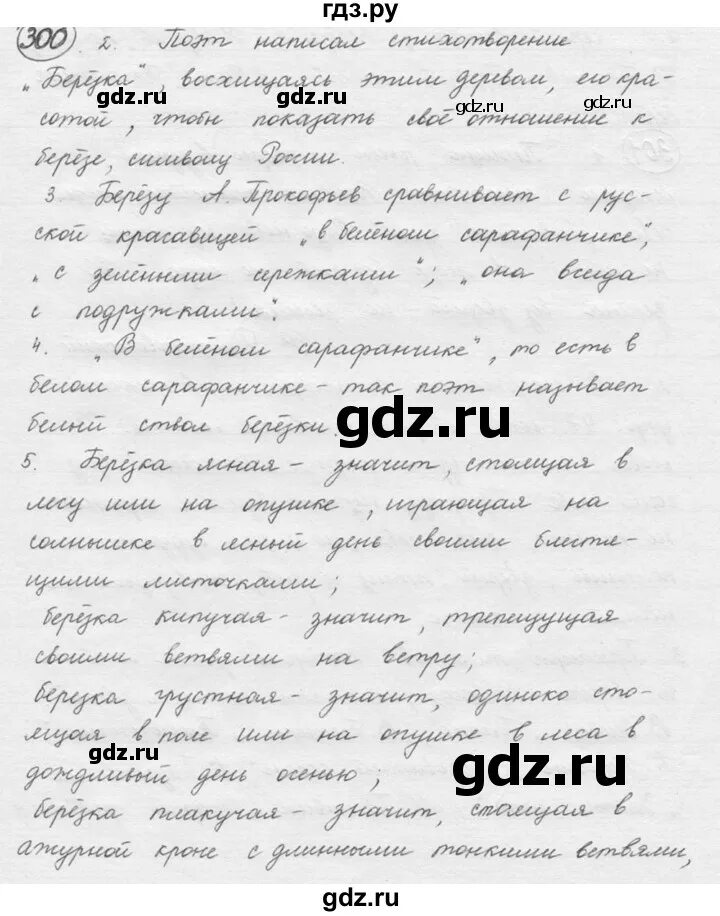 гдз.ру
300 2. Поэт написал стихотворение
„Берёзка“, восхищаясь этим деревом, его кра-
gdz.ru gdz.ru
сотой, чтобы показать своё отношение к
берёзе, символу России.
3. Берёзу А. Прокофьев сравнивает с рус-
ской красавицей „в белёном сарафанчике“,
„с зелёными сережками“; „она всегда
с подружками“.
4. „В белёном сарафанчике“, то есть в
белом сарафанчике – так поэт называет
белый ствол берёзки.
gdz.ru
5. Берёзка ясная – значит, стоящая в
лесу или на опушке, играющая на
солнышке в ясный день своими блестя-
щими листочками;
gdz.ru gdz.ru
берёзка кипучая – значит, трепещущая
своими ветвями на ветру;
березка грустная – значит, одиноко сто-
ящая в поле или на опушке в леса в
gdz.ru
дождливый день осенью;
gdz.ru
берёзка плакучая – значит, стоящая в
ажурной кроне с длинными тонкими ветвями,
gdz.ru